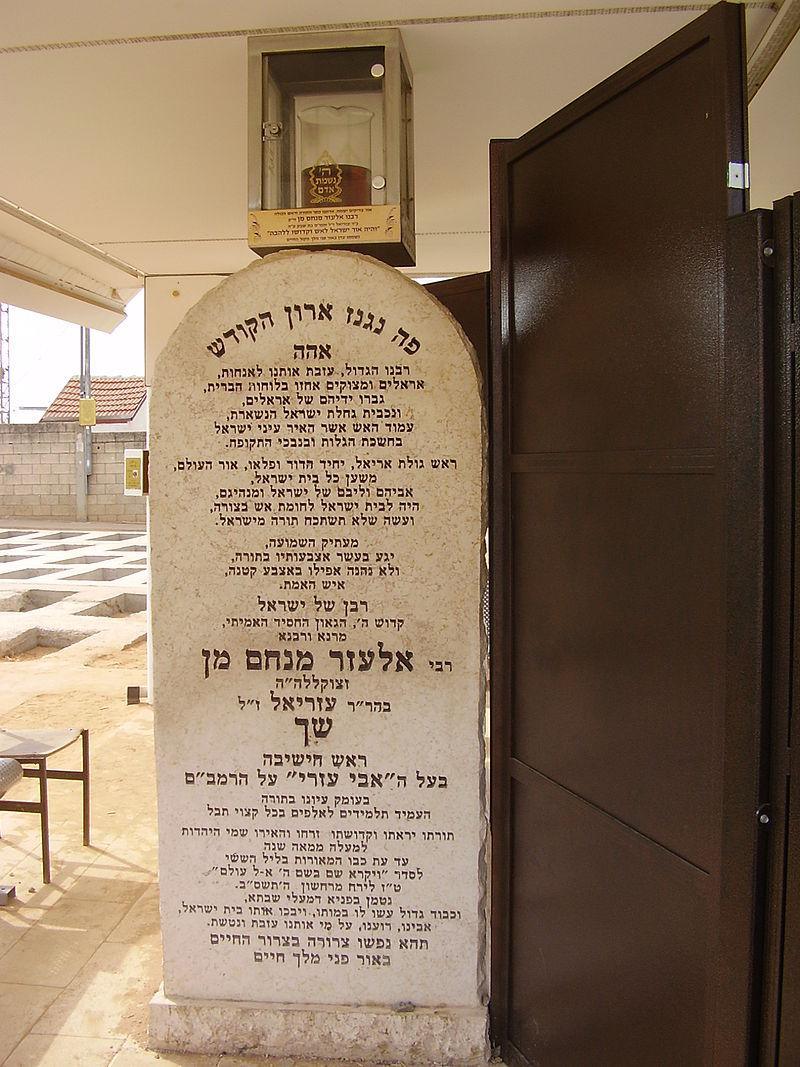 ה'
נשמת
אדם
רבנו אלעזר מנחם מן
"והיה אור ישראל לאש וקדושו ללהבה"
פה נגנז ארון הקודש
אהה
רבנו הגדול, עזבת אותנו לאנחות,
אראלים ומצוקים אחזו בלוחות הברית,
גברו ידיהם של אראלים,
ונכבית גחלת ישראל הנשארת,
עמוד האש אשר האיר עיני ישראל
בחשכת הגלות ובנבכי התקופה.
ראש גולת אריאל, יחיד הדור ופלאו, אור העולם,
משען כל בית ישראל,
אביהם וליבם של ישראל ומנהיגם,
היה לבית ישראל לחומת אש בצורה,
ועשה שלא תשתכח תורה מישראל.
מעתיק השמועה,
יגע בעשר אצבעותיו בתורה,
ולא נהנה אפילו באצבע קטנה,
איש האמת.
רבן של ישראל
קדוש ה', הגאון החסיד האמיתי,
מרנא ורבנא
רבי אלעזר מנחם מן
זצוקללה"ה
בהר"ר עזריאל ז"ל
שך
ראש הישיבה
בעל ה"אבי עזרי" על הרמב"ם
בעומק עיונו בתורה
העמיד תלמידים לאלפים בכל קצוי תבל
תורתו יראתו וקדושתו זרחו והאירו שמי היהדות
למעלה ממאה שנה
עד עת כבו המאורות בליל הששי
לסדר "ויקרא שם בשם ה' א-ל עולם"
ט"ז לירח מרחשון ה'תשס"ב.
נטמן בפניא דמעלי שבתא,
וכבוד גדול עשו לו במותו, ויבכו אותו בית ישראל,
אבינו, רוענו, על מי אותנו עזבת ונטשת.
תהא נפשו צרורה בצרור החיים
באור פני מלך חיים